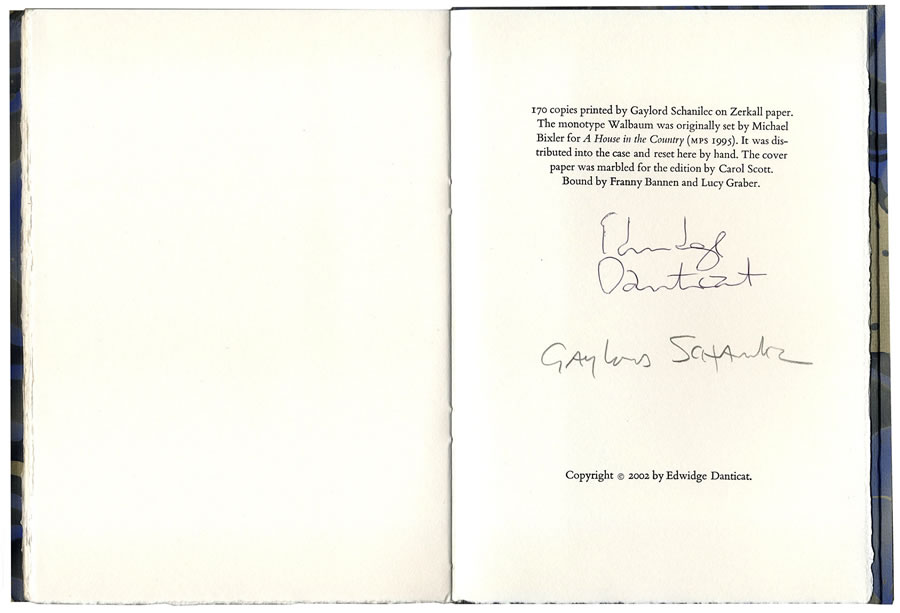 170 copies printed by Gaylord Schanilec on Zerkall paper.
The monotype Walbaum was originally set by Michael
Bixler for A House in the Country (MPS 1995). It was dis-
tributed into the case and reset here by hand. The cover
paper was marbled for the edition by Carol Scott.
Bound by Franny Bannen and Lucy Graber.
Edwidge
Danticat
Gaylord Schanilec
Copyright © 2002 by Edwidge Danticat.